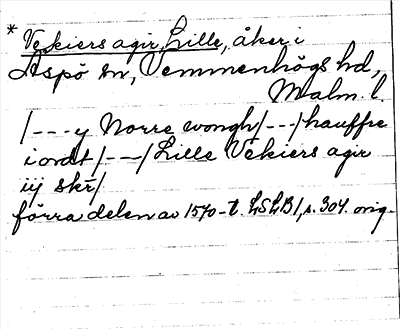 * Vekiers agir, Lille, åker i
Aspö sn, Vemmenhögs hd,
Malm. l.
/---y Norre wongh/---/hauffre
iordt/---/Lille Vekiers agir
iij skr̄/
förra delen av 1570-t. LSLB 1, s. 304. orig.